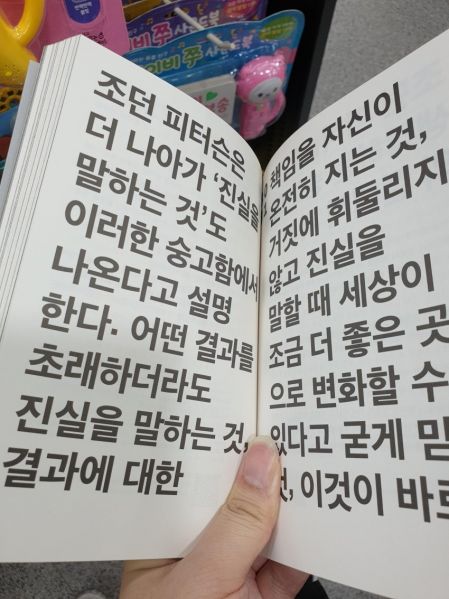 사운드북
조던 피터슨은
더 나아가 ‘진실을
말하는 것’도
이러한 숭고함에서
나온다고 설명
한다. 어떤 결과를
초래하더라도
진실을 말하는 것,
결과에 대한
책임을 자신이
온전히 지는 것,
거짓에 휘둘리지
않고 진실을
말할 때 세상이
조금 더 좋은 곳
으로 변화할 수
있다고 굳게 믿
것, 이것이 바로